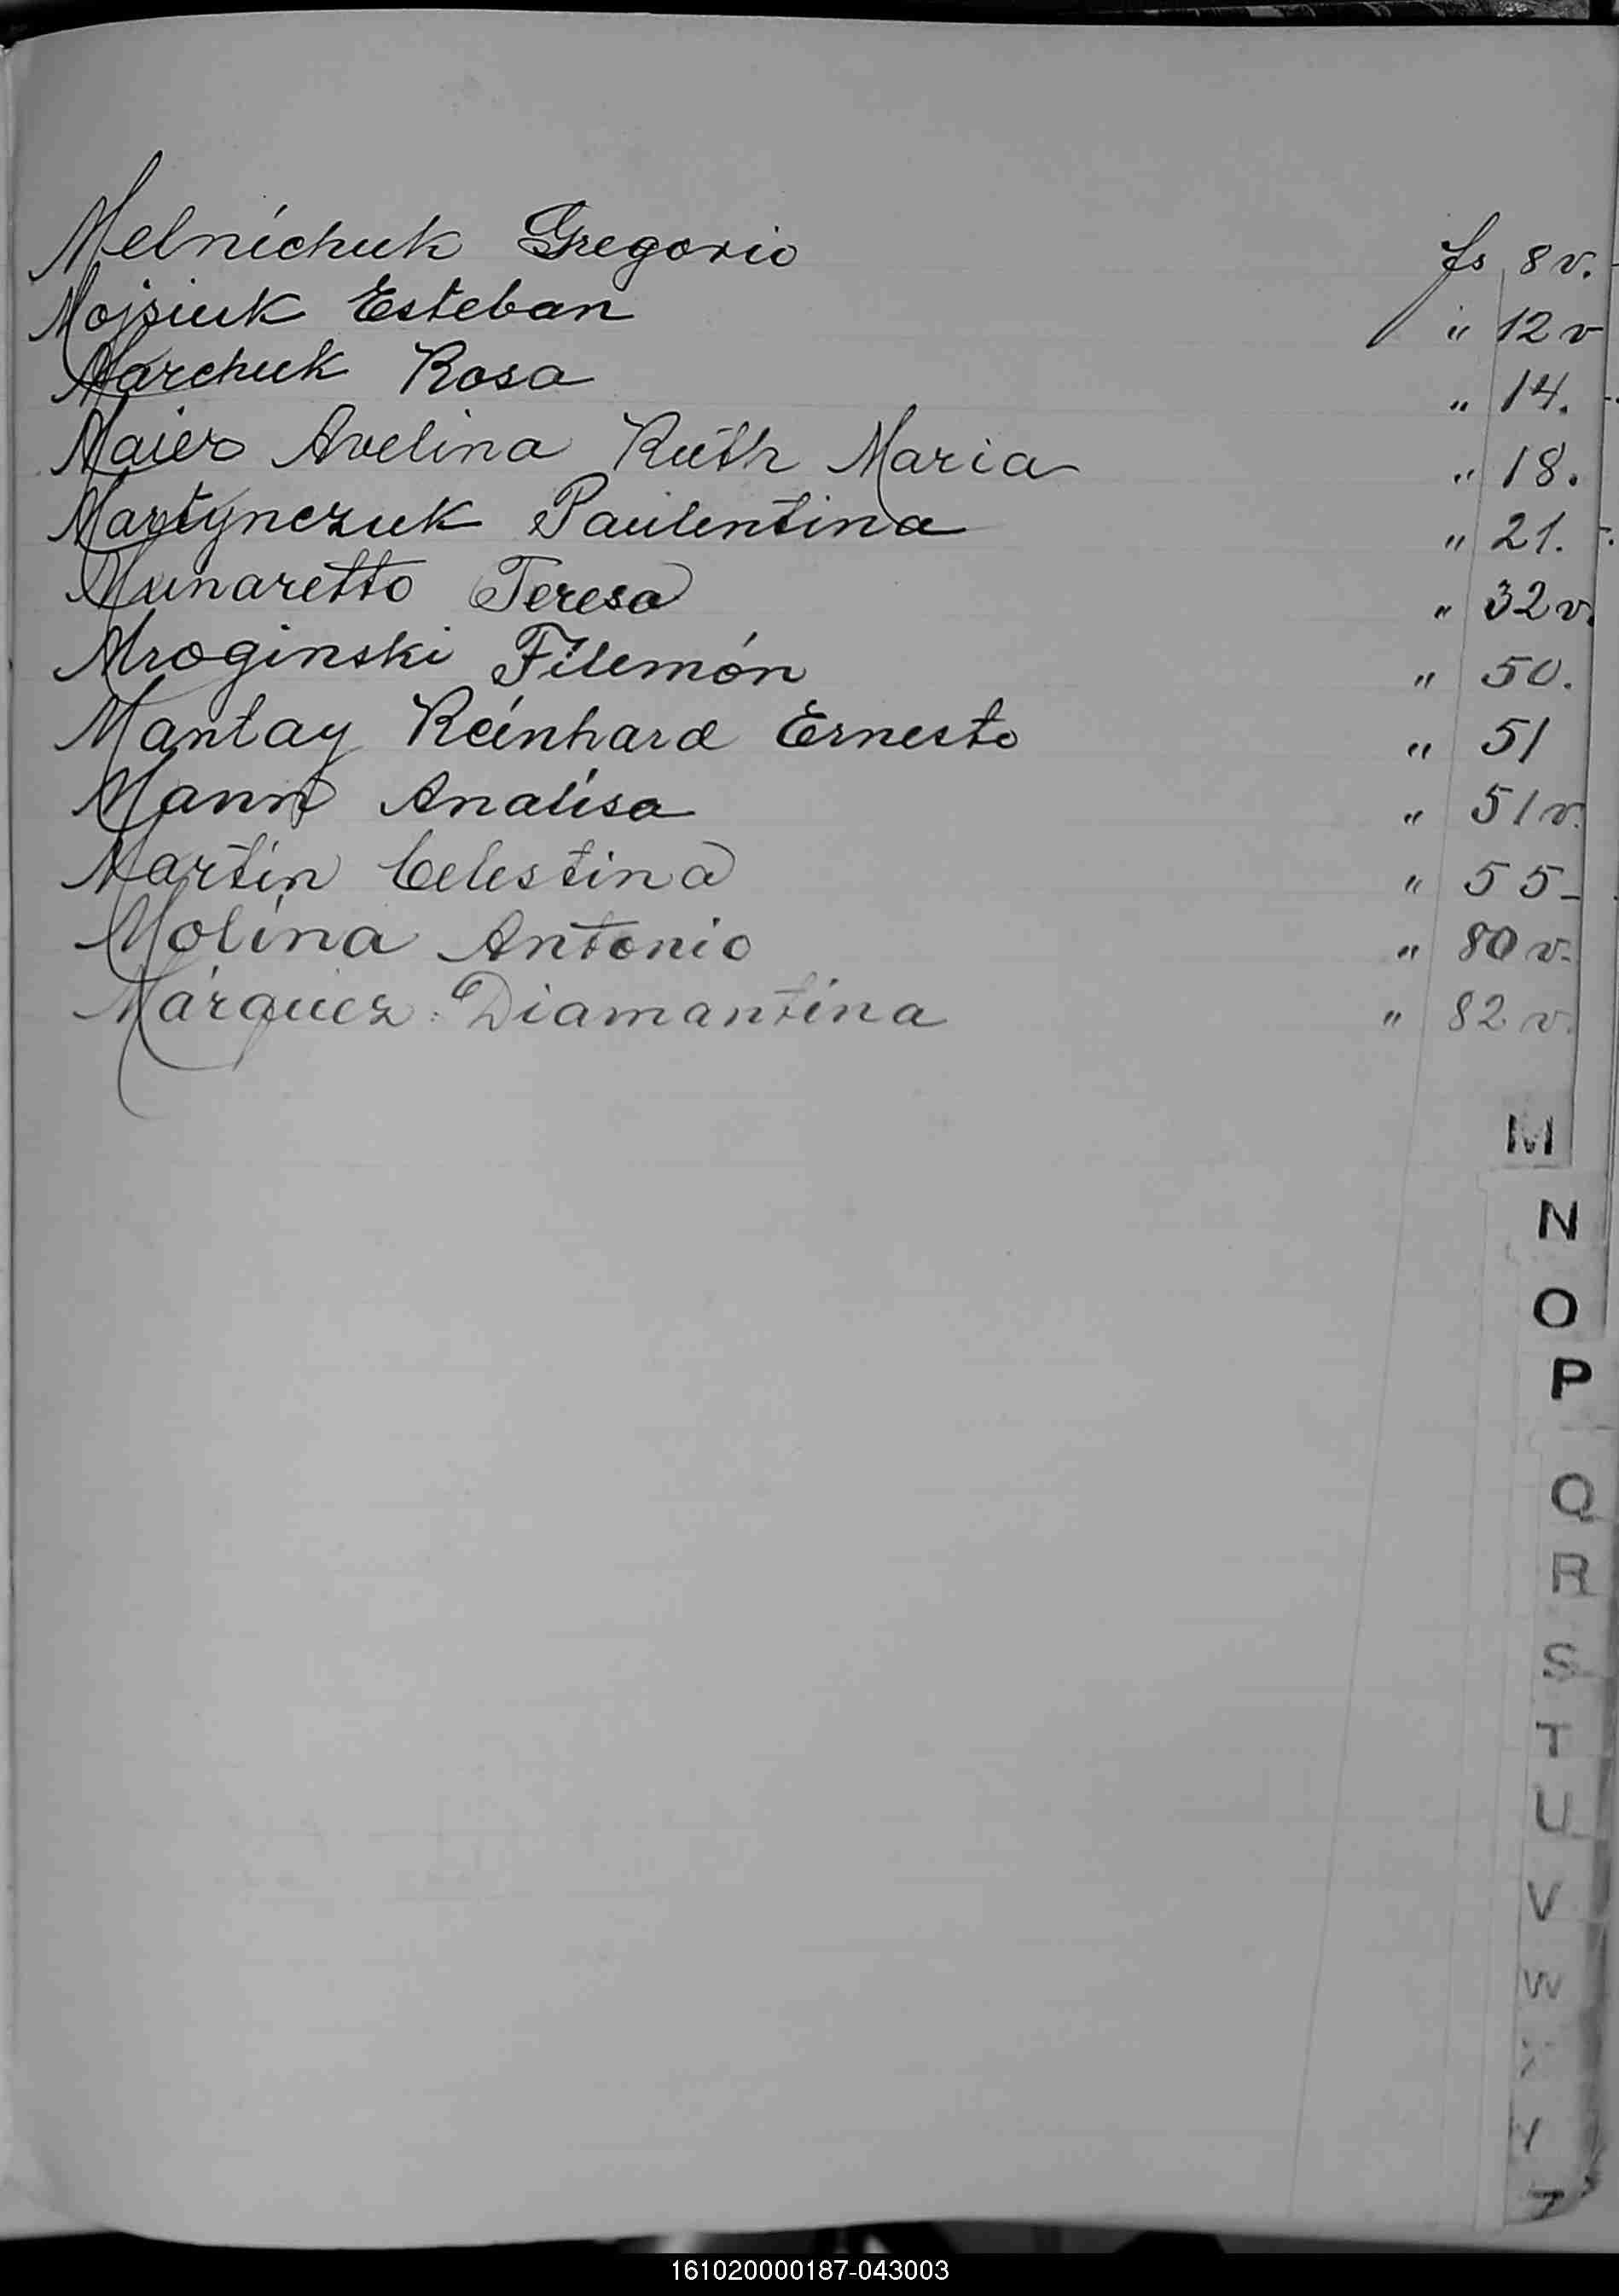 Melnichuk Gregorio fs 8 v.
Mojsiuk Esteban " 12 v
Marchuk Rosa " 14.
Maier Avelina Ruth Maria " 18.
Martynczuk Paulentina " 21.
Munaretto Teresa " 32 v.
Mroginski Filemón " 50.
Mantay Reinhard Ernesto " 51
Mann Analisa " 51 v.
Martin Celestina " 55-
Molina Antonio " 80 v.
Márquez Diamantina " 82 v.
M
N
O
P
Q
R
S
T
U
V
W
X
Y
Z
161020000187-043003